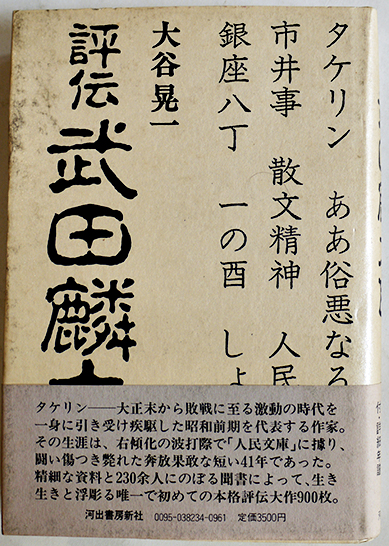 タケリン ああ俗悪なる
市井事 散文精神 人民
銀座八丁 一の酉 しょ
大谷晃一
評伝 武田麟
タケリン――大正末から敗戦に至る激動の時代を
一身に引き受け疾駆した昭和前期を代表する作家。
その生涯は、右傾化の波打際で「人民文庫」に據り、
闘い傷つき斃れた奔放果敢な短い41年であった。
精細な資料と230余人にのぼる聞書によって、生き
生きと浮彫る唯一で初めての本格評伝大作900枚。
河出書房新社 0095-038234-0961 定価3500円